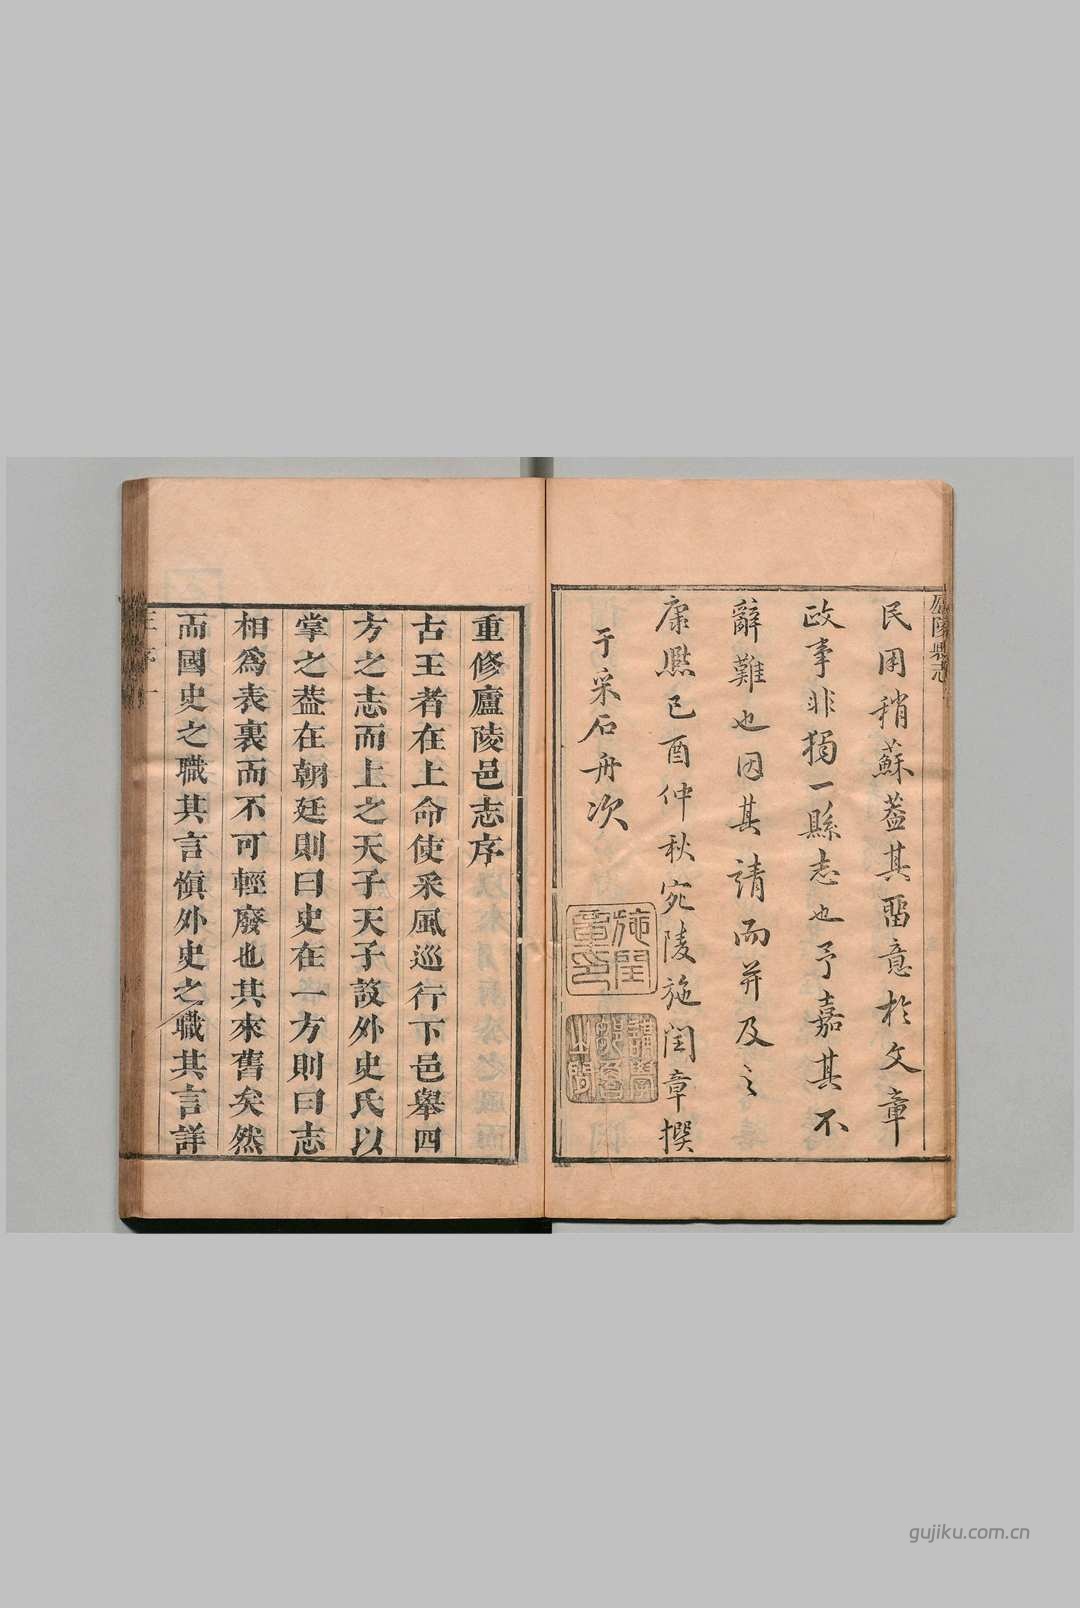 廬陵縣志
民用稍蘇蓋其留意於文章
政事非獨一縣志也予嘉其不
辭難也因其請而并及之
康熙己酉仲秋宛陵施閏章撰
于采石舟次
施閏章印
重修廬陵邑志序
古王者在上命使采風巡行下邑舉四
方之志而上之天子天子設外史氏以
掌之葢在朝廷則曰史在一方則曰志
相為表裏而不可輕廢也其來舊矣然
而國史之職其言愼外史之職其言詳
gujiku.com.cn